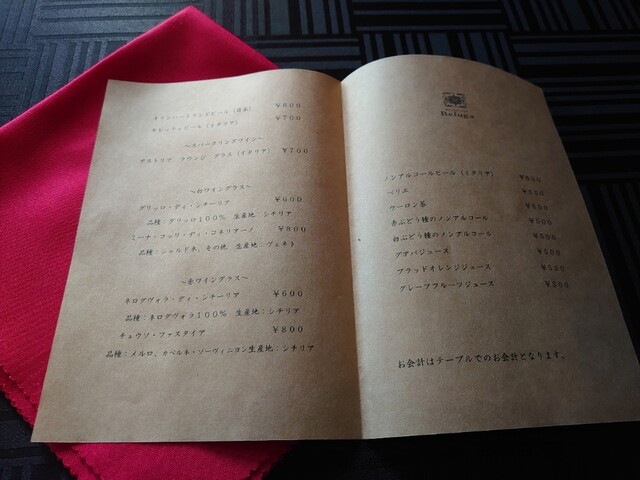 キリンハートランドビール（日本） ￥600
モレッティビール（イタリア） ￥700
～スパークリングワイン～
アストリア ラウンジ グラス（イタリア） ￥700
～白ワイングラス～
グリッロ・ディ・シチーリア ￥600
品種：グリッロ１００％ 生産地：シチリア
ミーナ・コッリ・ディ・コネリアーノ ￥800
品種：シャルドネ、その他 生産地：ヴェネト
～赤ワイングラス～
ネログヴォラ・ディ・シチーリア ￥600
品種：ネログヴォラ１００％ 生産地：シチリア
チュウソ・ファスタイア ￥800
品種：メルロ、カベルネ・ソーヴィニヨン生産地：シチリア
Beluga
ノンアルコールビール（イタリア） ￥600
ペリエ ￥500
ウーロン茶 ￥500
赤ぶどう種のノンアルコール ￥500
白ぶどう種のノンアルコール ￥500
グアバジュース ￥500
ブラッドオレンジジュース ￥500
グレープフルーツジュース ￥500
お会計はテーブルでのお会計となります。